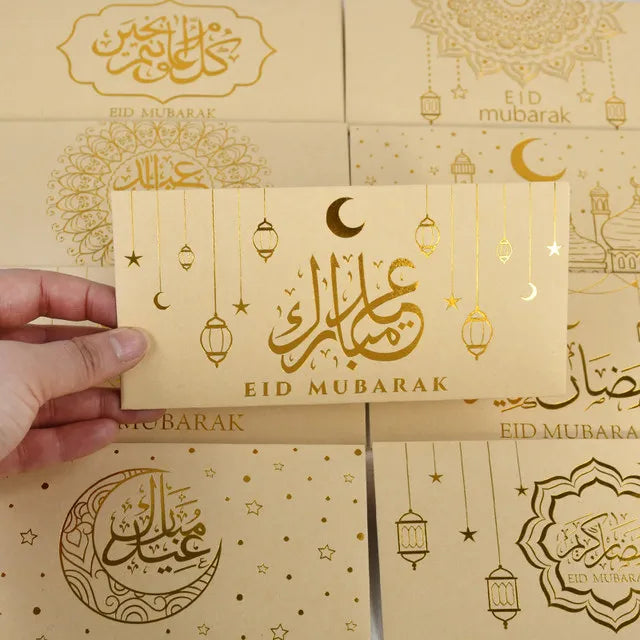 كل عام وأنتم بخير
EID MUBARAK
EID
mubarak
عيد مبارك
EID MUBARAK
MUBARAK
رمضان
EID MUBARA
عيد مبارك
رمضان كريم
EID MUBARA